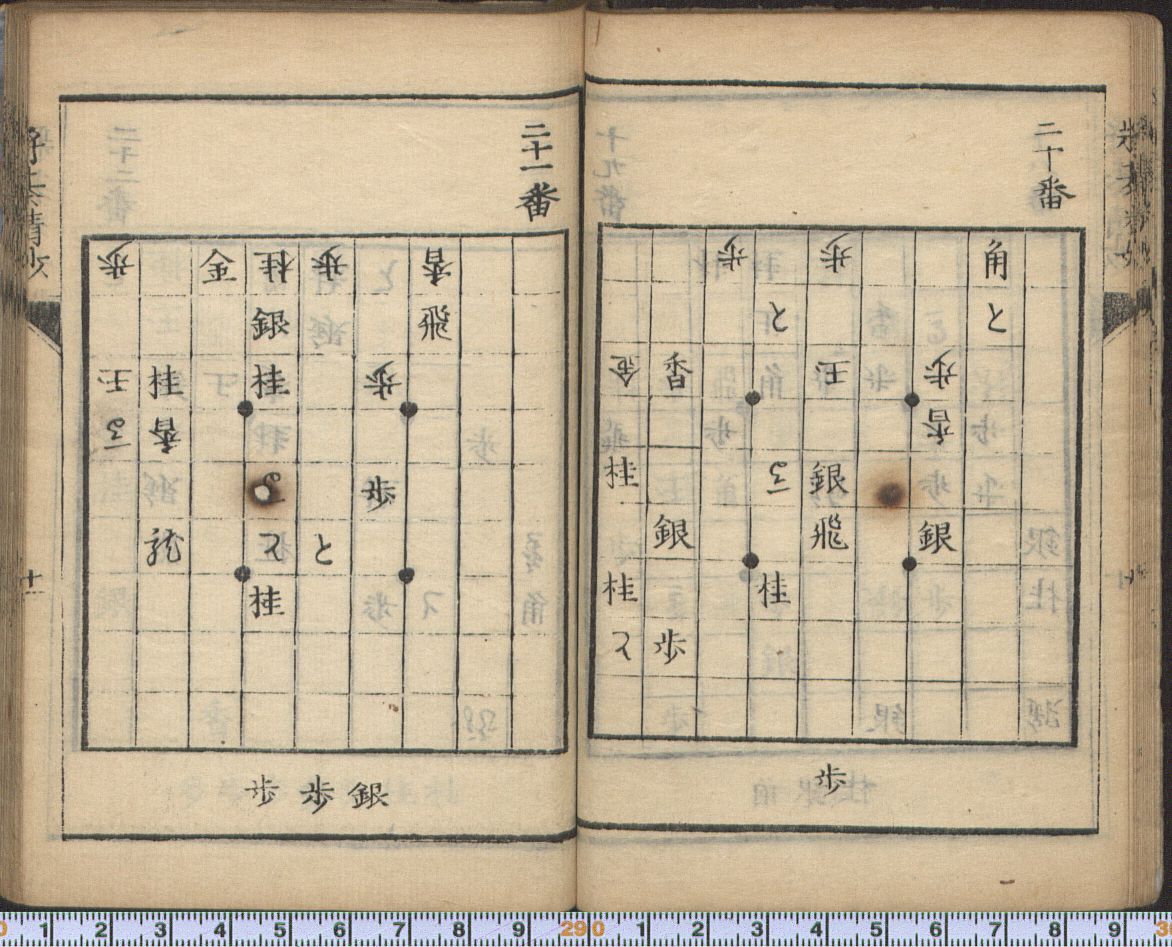 二十番
角
歩 歩
と と
歩 王 香 金
香
銀 桂
銀 飛 銀
桂 桂
歩
歩
二十一番
香 歩 桂 金 歩
飛 銀
歩 桂 桂 王
香
歩
と 龍
桂
銀 歩 歩
十一